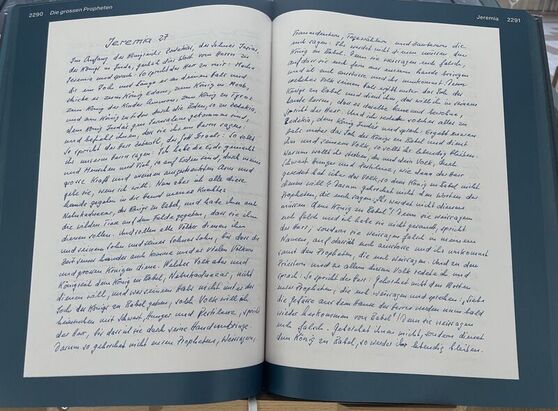 2290 Die grossen Propheten
Jeremia 27
Im Anfang des Königreichs Zedekia, des Sohnes Josias,
des Königs in Juda, geschah dies Wort vom Herrn zu
Jeremia und sprach: So spricht der Herr zu mir: Mache
dir ein Joch und hänge es an deinen Hals und
schicke es zum König Edom, zum König in Moab,
zum König der Kinder Ammon, zum König zu Tyrus,
und zum König zu Sidon durch die Boten, so zu Zedekia,
dem König Judas gen Jerusalem gekommen sind,
und befiehl ihnen, daß sie ihren Herren sagen:
So spricht der Herr Zebaoth, der Gott Israels: So sollt
ihr euren Herren sagen: Ich habe die Erde gemacht
und Menschen und Vieh, so auf Erden sind, durch meine
große Kraft und meinen ausgestreckten Arm und
gebe sie, wem ich will. Nun aber ich alle diese
Lande gegeben in die Hand meines Knechtes
Nebukadnezar, des Königs zu Babel, und habe ihm auch
die wilden Tiere auf dem Felde gegeben, daß sie ihm
dienen sollen. Und sollen alle Völker dienen ihm
und seinem Sohn und seines Sohnes Sohn, bis daß die
Zeit seines Landes auch komme und es vielen Völkern
und großen Königen diene. Welches Volk aber und
Königreich dem König zu Babel, Nebukadnezar, nicht
dienen will, und wer seinen Hals nicht unter das
Joch des Königs zu Babel geben, solch Volk will ich
heimsuchen mit Schwert, Hunger und Pestilenz, spricht
der Herr, bis daß ich sie durch seine Hand umbringe.
Darum so gehorchet nicht euren Propheten, Weissagern,
Jeremia 2291
Traumdeutern, Tagewählern und Zauberern, die
euch sagen: Ihr werdet nicht dienen müssen dem
König zu Babel. Denn sie weissagen euch falsch,
auf daß sie euch fern aus eurem Lande bringen
und ich euch ausstoße und ihr umkommet. Denn
welches Volk seinen Hals ergibt unter das Joch des
Königs zu Babel und dient ihm, das will ich in seinem
Lande lassen, daß es dasselbe baue und bewohne,
spricht der Herr. Und ich redete solches alles zu
Zedekia, dem König Judas und sprach: Ergebt euren
Hals unter das Joch des Königs zu Babel und dient
ihm und seinem Volk, so sollt ihr lebendig bleiben.
Warum wollt ihr sterben, du und dein Volk, durch
Schwert, Hunger und Pestilenz, wie denn der Herr
geredet hat über das Volk, so dem König zu Babel nicht
dienen will? Darum gehorchet nicht den Worten der
Propheten, die euch sagen: "Ihr werdet nicht dienen
müssen dem König zu Babel!" Denn sie weissagen
euch falsch und ich habe sie nicht gesandt, spricht
der Herr, sondern sie weissagen falsch in meinem
Namen, auf daß ich euch ausstoße und ihr umkommt
samt den Propheten, die euch weissagen. Und zu den
Priestern und zu allem diesem Volk redete ich und
sprach: So spricht der Herr: Gehorchet nicht den Worten
eurer Propheten, die euch weissagen und sprechen: "Siehe,
die Gefäße aus dem Hause des Herrn werden nun bald
wieder herkommen von Babel!" Denn sie weissagen
euch falsch. Gehorchet ihnen nicht, sondern dienet
dem König zu Babel, so werdet ihr lebendig bleiben.